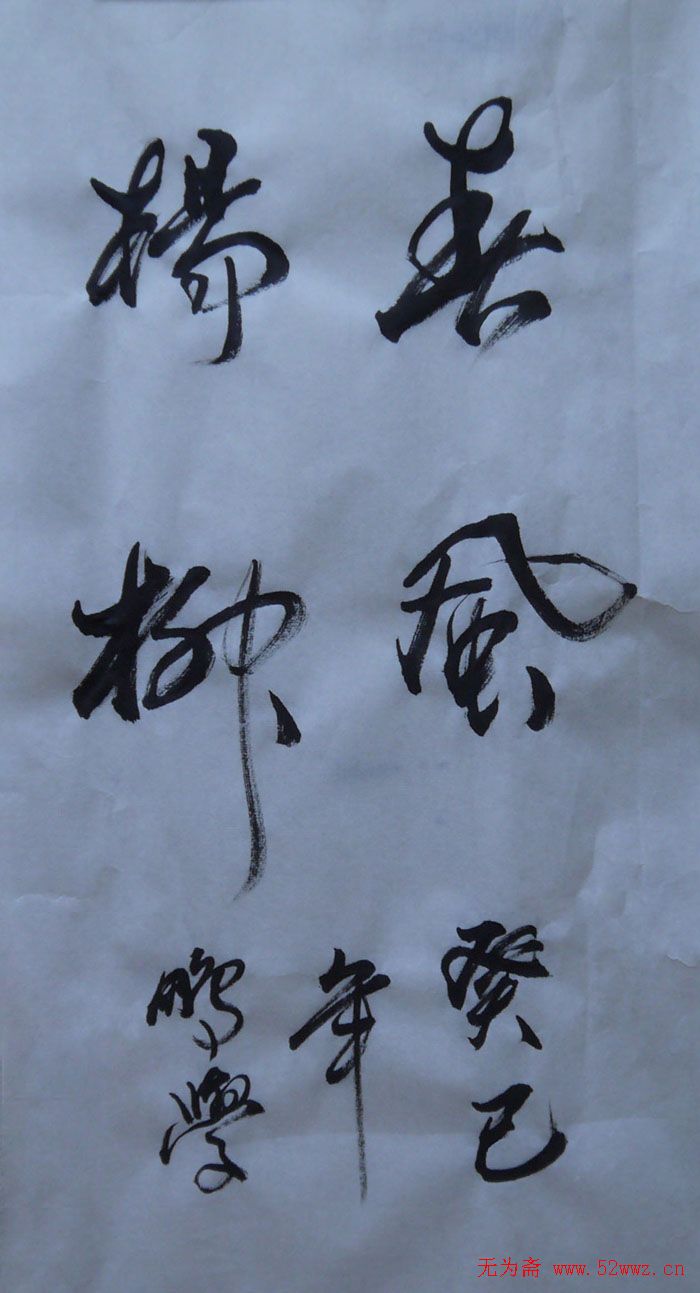 春風
楊柳
癸巳
年
鵬學
无为斋 www.52wwz.cn